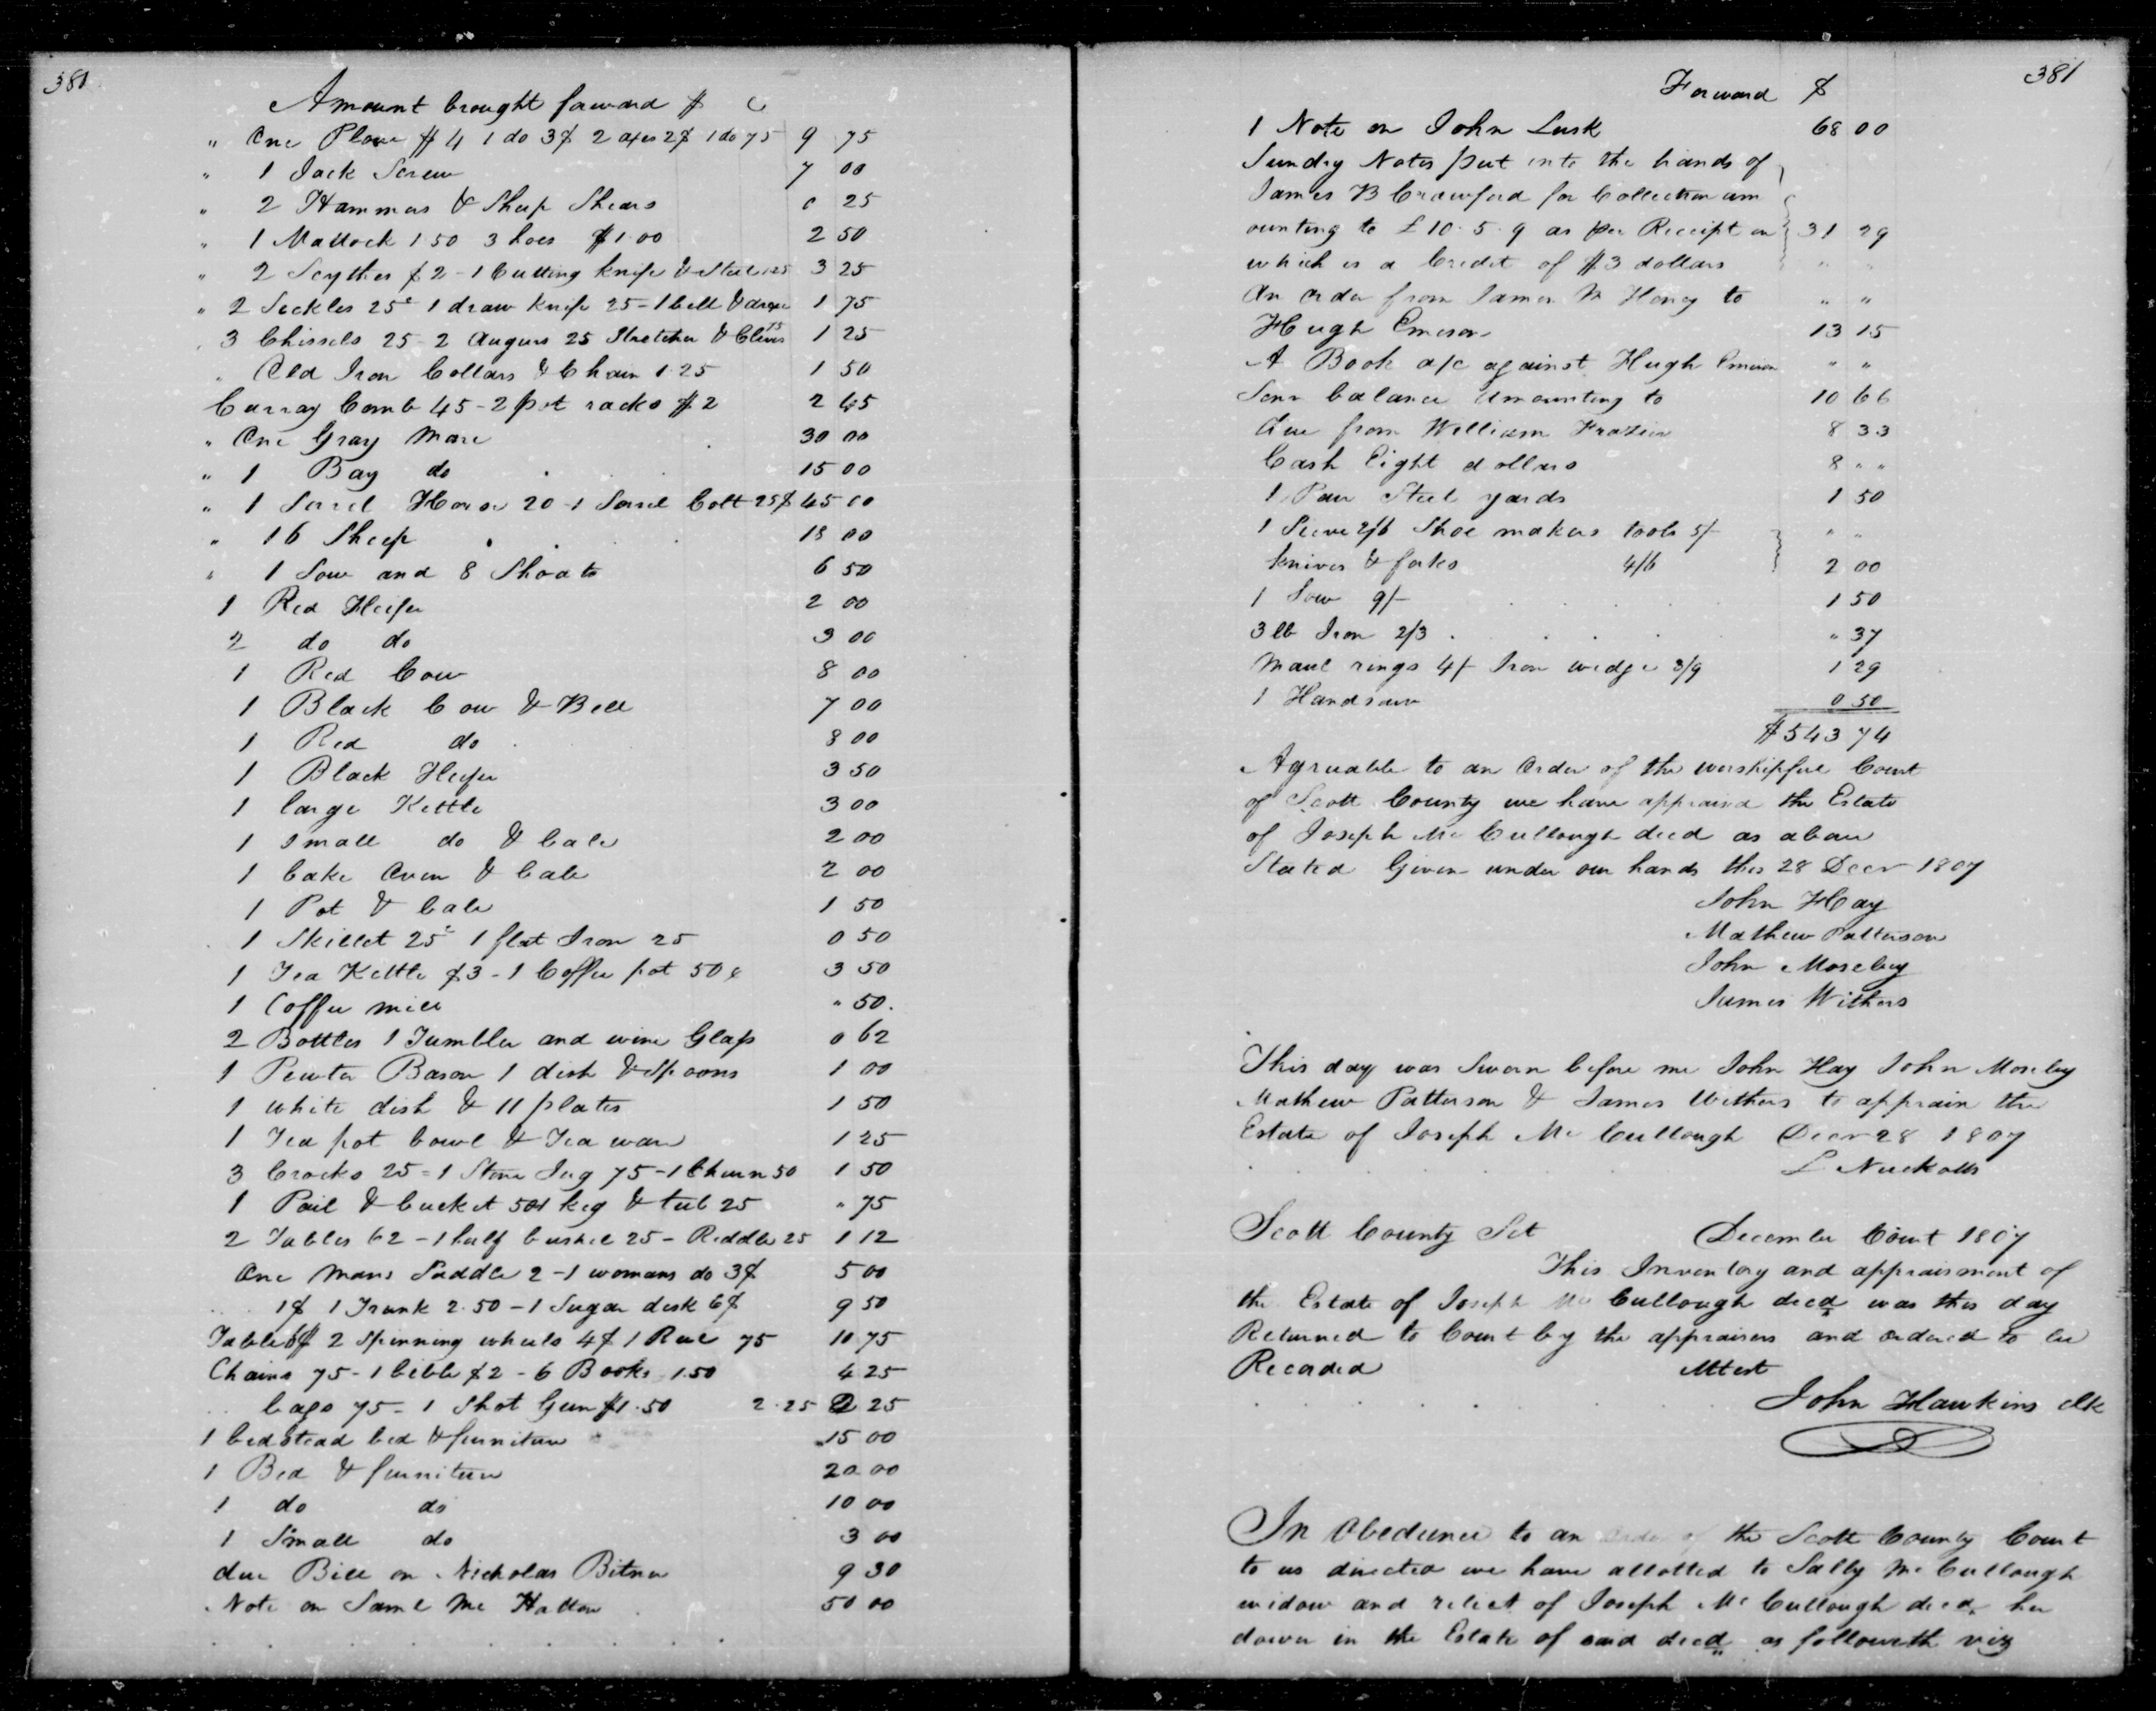 381
Amount brought forward $ C
" One Plow $4 1 do 3$ 2 axes 2$ 1 do 75 9 75
" 1 Jack Screw 7 00
" 2 Hammers & Sheep Shears 0 25
" 1 Mattock 1 50 3 hoes $1.00 2 50
" 2 Scythes $2 - 1 Cutting knife & Steel 125 3 25
" 2 Seckles 25c 1 draw knife 25 - 1 bell & 1 75
" 3 Chissels 25 - 2 Augurs 25 Stretcher & Clevis 75 1 25
" Old Iron Collars & Chain 1.25 1 50
Curray Comb 45 - 2 pot racks $2 2 45
" One Gray Mare 30 00
" 1 Bay do 15 00
" 1 Sorrel Horse 20 - 1 Sorrel Colt 25$ 45 00
" 16 Sheep 18 00
" 1 Sow and 8 Shoats 6 50
1 Red Heifer 2 00
2 do do 3 00
1 Red Cow 8 00
1 Black Cow & Bell 7 00
1 Red do 8 00
1 Black Heifer 3 50
1 large Kettle 3 00
1 small do & bale 2 00
1 bake Oven & bale 2 00
1 Pot & bale 1 50
1 Skillet 25c 1 flat Iron 25 0 50
1 Tea Kettle $3 - 1 Coffee pot 50c 3 50
1 Coffee mill " 50.
2 Bottles 1 Tumbler and wine Glass 0 62
1 Pewter Bason 1 dish & Spoons 1 00
1 white dish & 11 plates 1 50
1 Tea pot bowl & Tea ware 1 25
3 Crocks 25 - 1 Stone Jug 75 - 1 Churn 50 1 50
1 Pail & bucket 50 1 keg & tub 25 " 75
2 Tables 62 - 1 half bushel 25 - Reddle 25 1 12
One Mans Saddle 2 - 1 womans do 3$ 5 00
1$ 1 Trunk 2.50 - 1 Sugar desk 6$ 9 50
Table 6$ 2 Spinning wheels 4$ 1 Reel 75 10 75
Chairs 75 - 1 bible $2 - 6 Books 1.50 4 25
bags 75 - 1 Shot Gun $1.50 2.25 2 25
1 bedstead bed & furniture 15 00
1 Bed & furniture 20 00
1 do do 10 00
1 Small do 3 00
due Bill on Nicholas Bitner 9 30
Note on Saml Mc Hatton 50 00
381
Forward $
1 Note on John Lusk 68 00
Sundry Notes put into the hands of
James B Crawford for Collection am
ounting to £10.5.9 as per Receipt on 31 29
which is a Credit of $3 dollars " "
An order from James M Honey to " "
Hugh Emerson 13 15
A Book a/c against Hugh Emerson " "
Senr balance amounting to 10 66
due from William Frazier 8 33
Cash Eight dollars 8 " "
1 Pair Steel yards 1 50
1 Sieve 2/6 Shoe makers tools 5/- " "
knives & forks 4/6 2 00
1 Sow 9/- 1 50
3 lb Iron 2/3 " 37
Maul rings 4/- Iron wedge 3/9 1 29
1 Handsaw 0 50
$543 74
Agreuable to an Order of the worshipfull Court
of Scott County we have appraised the Estate
of Joseph Mc Cullough decd as above
Stated Given under our hands this 28 Decr 1807
John Hay
Mathew Patterson
John Moseley
James Withers
This day was Sworn before me John Hay John Moseley
Mathew Patterson & James Withers to apprais the
Estate of Joseph Mc Cullough Decr 28 1807
L Nuckolls
Scott County Sct December Court 1807
This Inventory and appraisment of
the Estate of Joseph Mc Cullough decd was this day
Returned to Court by the appraisers and ordered to be
Recorded Attest
John Hawkins clk
In Obedience to an order of the Scott County Court
to us directed we have allotted to Sally Mc Cullough
widow and relict of Joseph Mc Cullough decd her
dower in the Estate of said decd as followeth viz